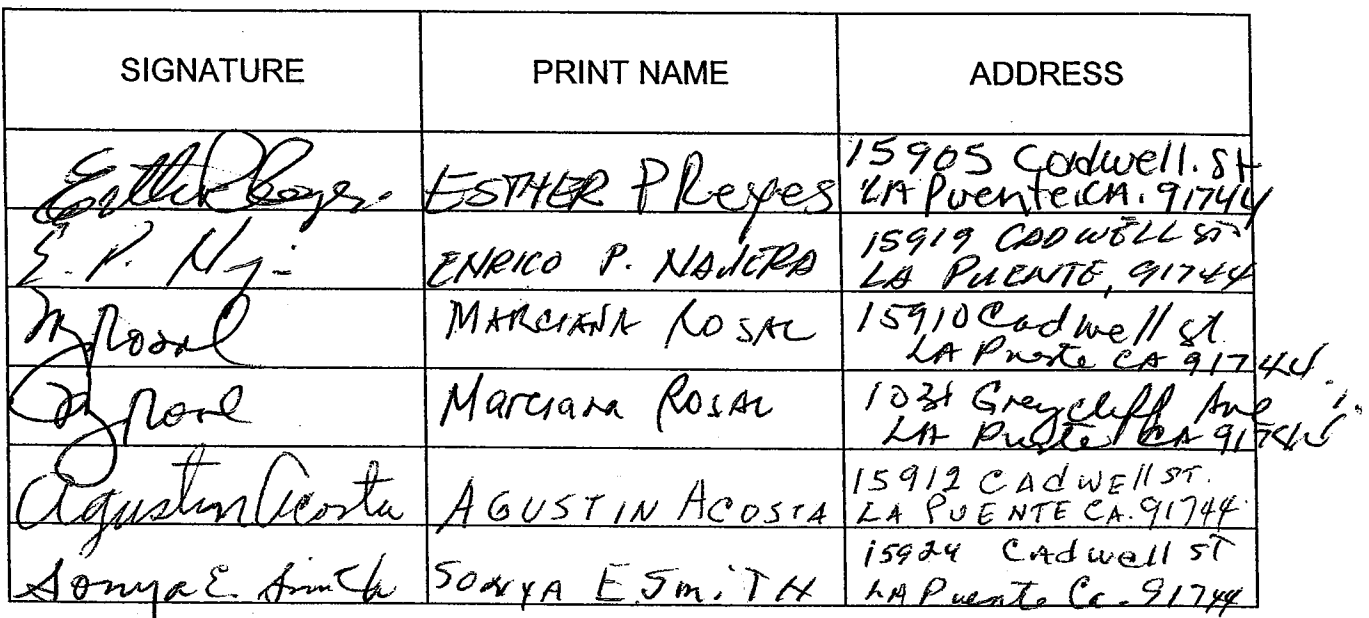 SIGNATURE PRINT NAME ADDRESS
Esther P Reyes ESTHER P Reyes 15905 Cadwell. St
LA Puente. CA. 91744
E. P. ENRICO P. NAJERA 15919 CADWELL ST
LA PUENTE, 91744
M Rosal MARCIANA ROSAL 15910 Cadwell st.
LA Puente CA 91744
M Rosal Marciana ROSAL 1031 Greycliff Ave
LA Puente CA 91744
Agustin Acosta AGUSTIN ACOSTA 15912 CADWEll ST.
LA PUENTE CA. 91744
Sonya E. Smith SONYA E. SmiTH 15924 CAdwell ST
LA Puente Ca. 91744